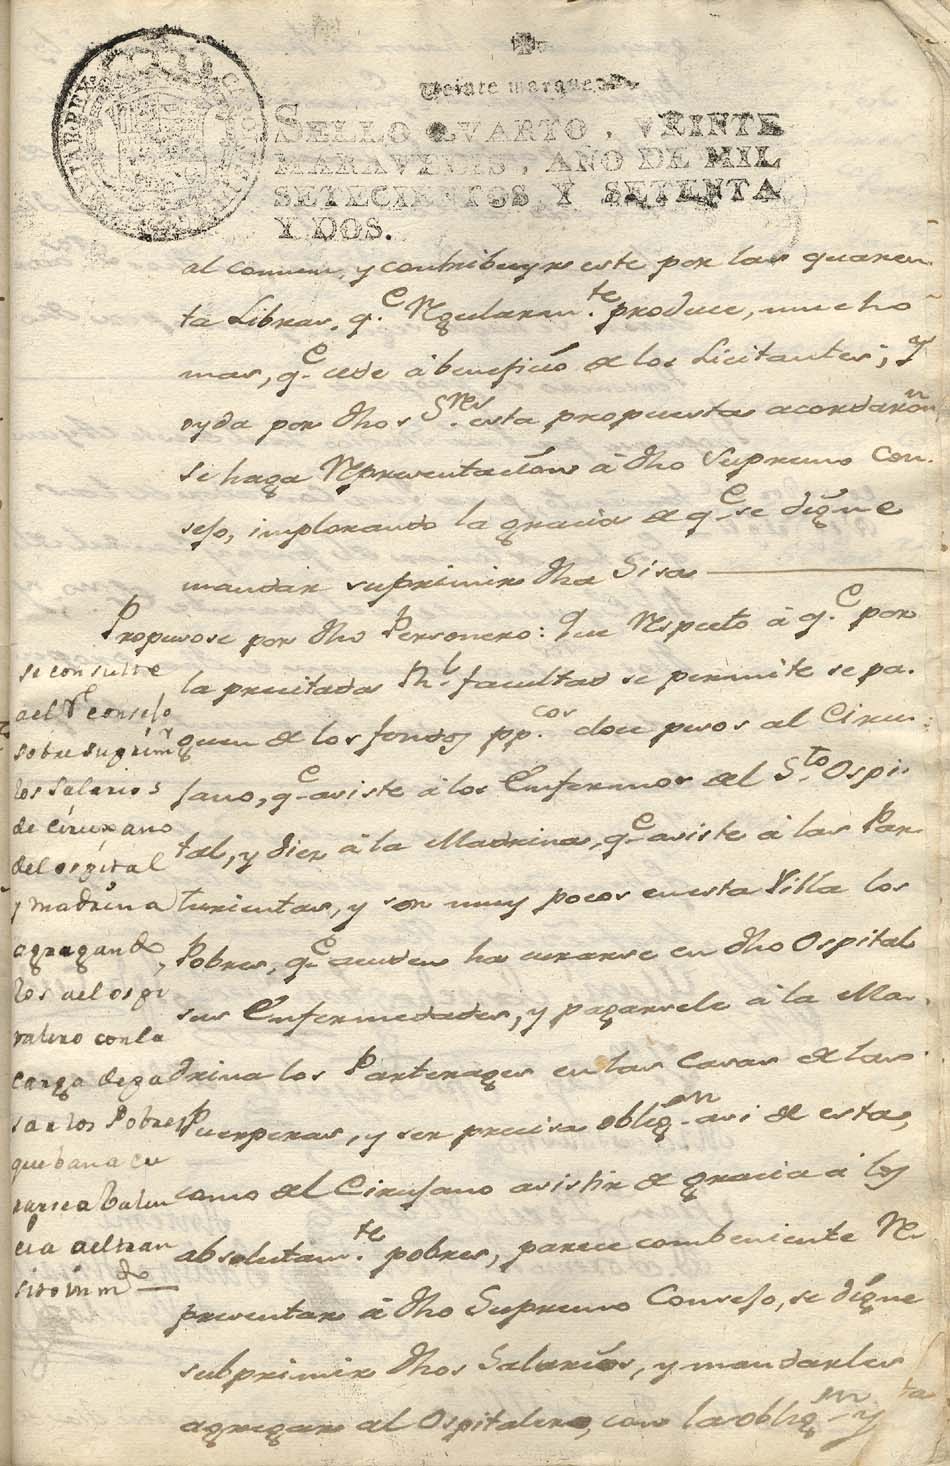 Veinte marauedis
SELLO QVARTO, VEINTE
MARAVEDIS, AÑO DE MIL
SETECIENTOS Y SETENTA
Y DOS.
al comun, y contribuyre este por las quaren-
ta Libras, q.e Regularm.te produce, mucho
mas, q.e cede à beneficio de los Licitantes; Y
oyda por dhos S.res esta propuesta acordaron
se haga Representacion à dho Supremo Con-
sejo, implorando la gracia de q.e se digne
mandar suprimir dha Sisa
Propusose por dho Personero: Que Respecto à q.e por
la precitada Rl. facultad se permite se pa-
guen de los fondos pp.cos doce pesos al Ciru-
jano, q.e asiste à los Enfermos del S.to Ospi-
tal, y diez à la Madrina, q.e asiste à las Par-
turientas, y son muy pocos en esta Villa los
Pobres, q.e acuden ha curarse en dho Ospital
sus Enfermedades, y pagarsele à la Ma-
drina los Parterages en las casas de las
Puerperas, y ser precisa oblig.on asi de esta,
como del Cirujano asistir de gracia à los
absolutam.te pobres, parece combeniente Re-
presentar à dho Supremo Consejo, se digne
subprimir dhos Salarios, y mandarles
agregar al Ospitalero, con la oblig.on y
se consulte
ael Rl consejo
sobre suprim.r
los salarios
de cirujano
del ospital
y madrina
agregando
los ael ospi
talero con la
carga de pa
sar los Pobres
que ban a cu
rarse a Valen
cia ael tran
sito inm.do